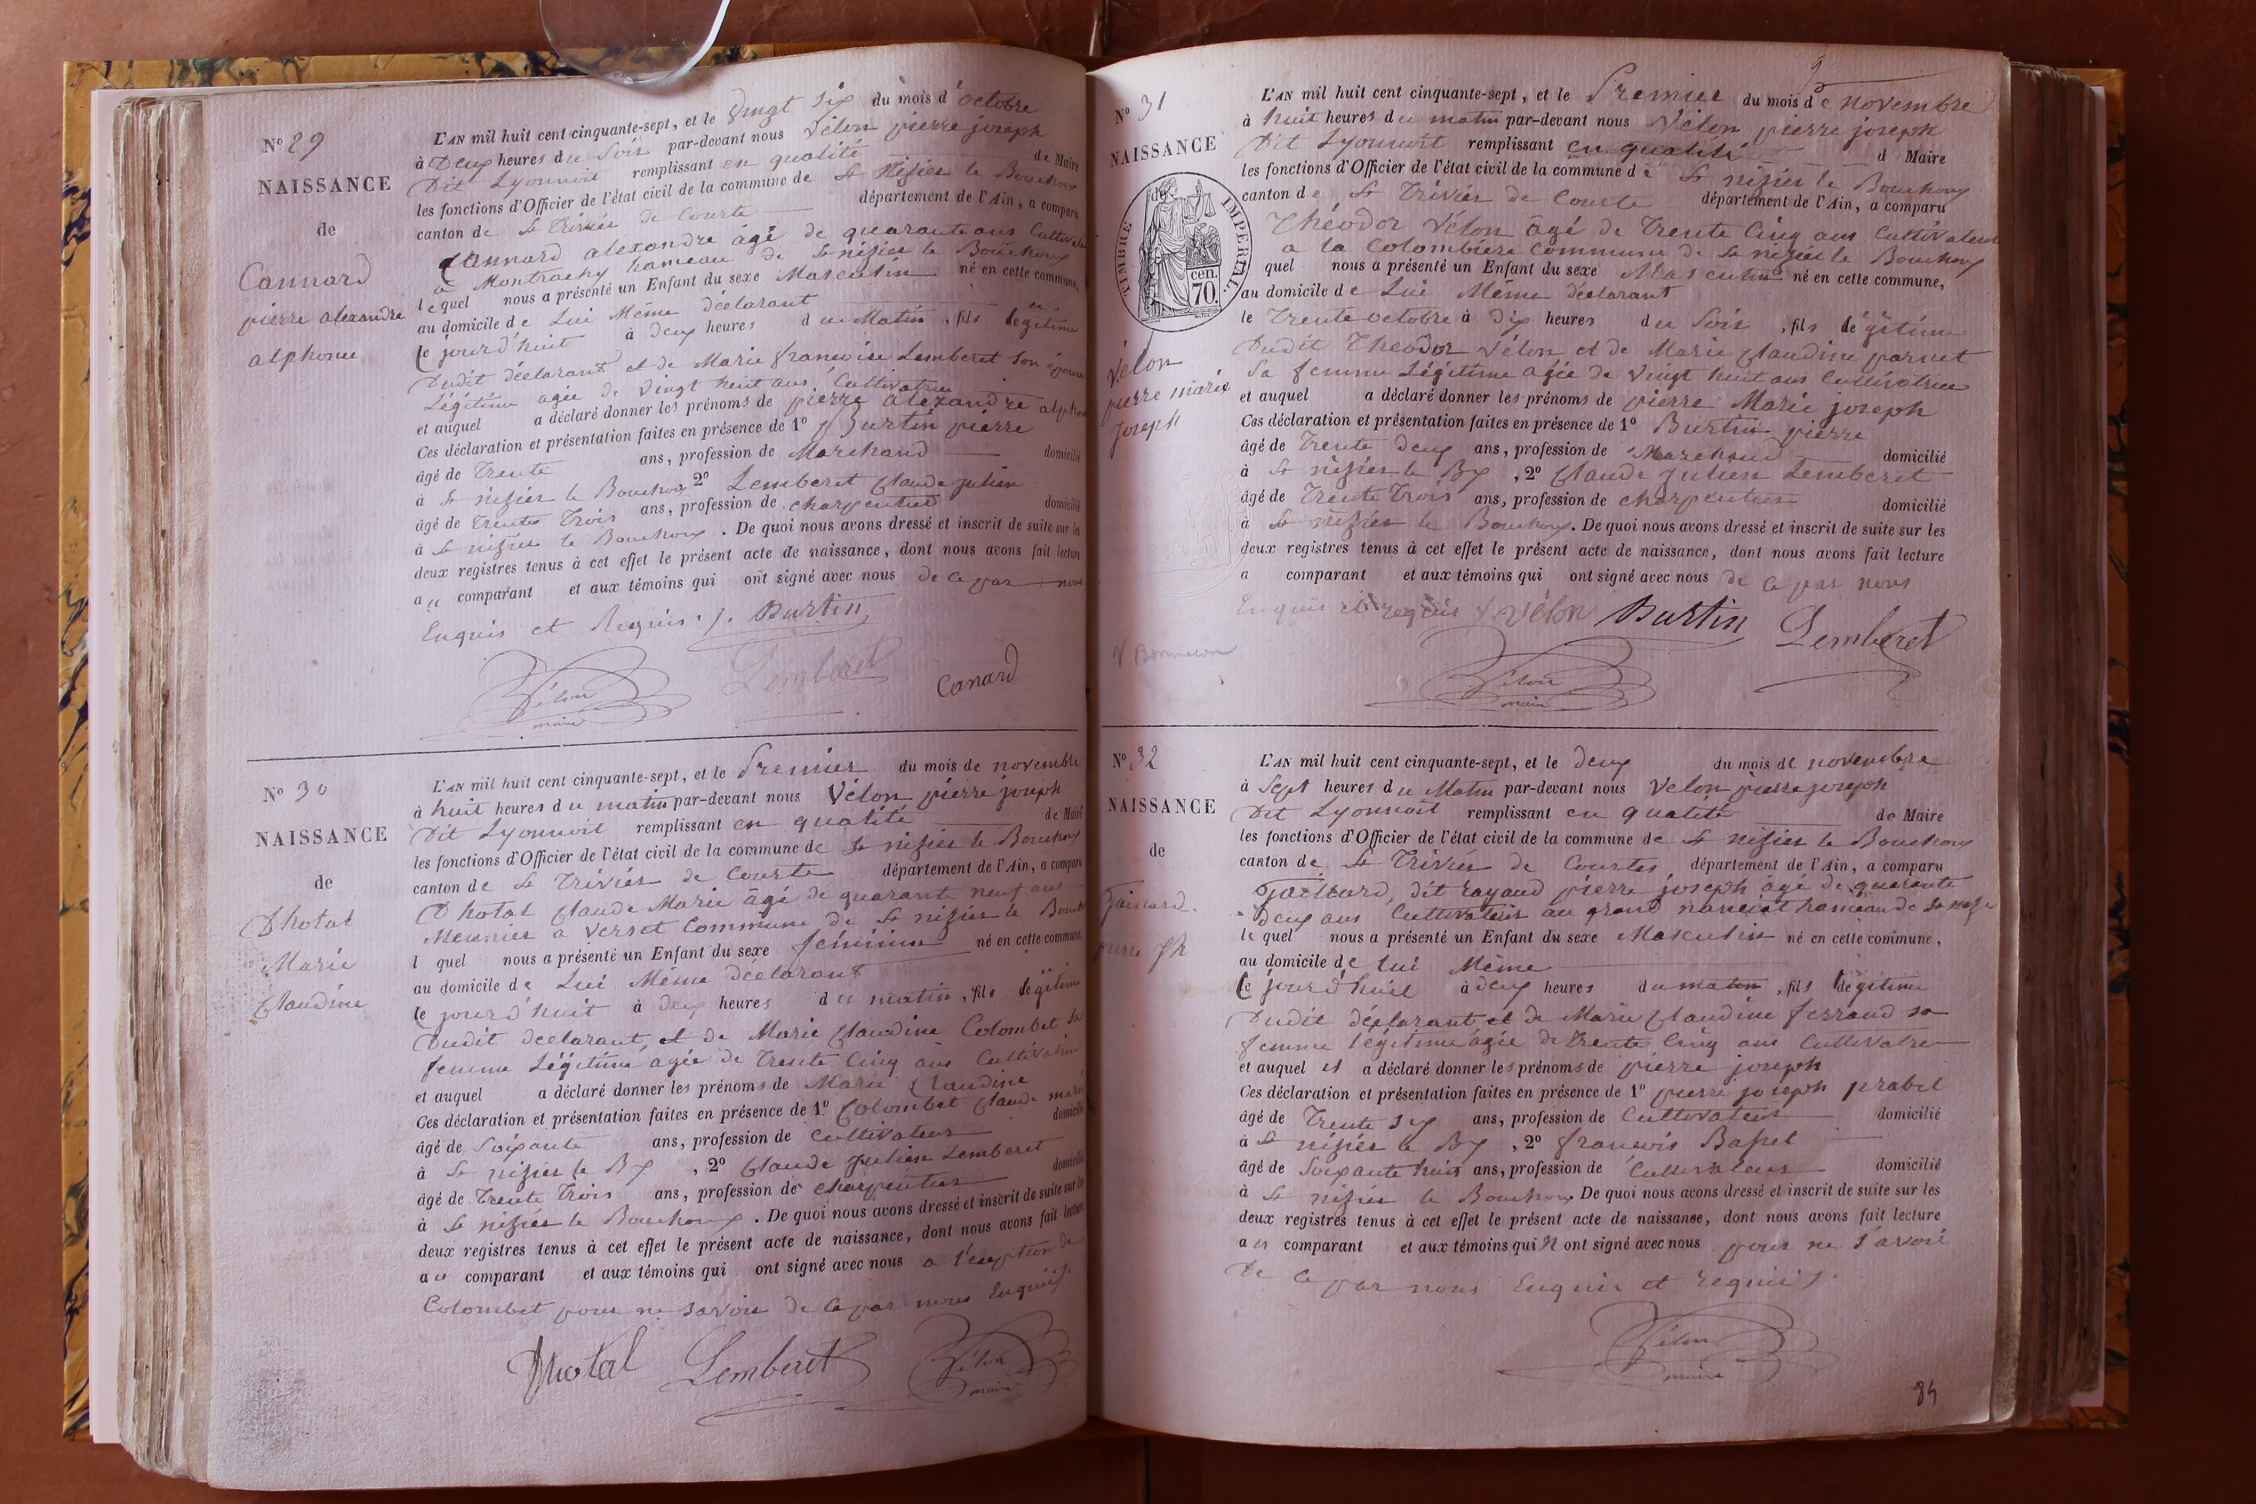 N° 29
NAISSANCE
de
Cannard
pierre alexandre
alphonse
L'AN mil huit cent cinquante-sept, et le Vingt Six du mois d'octobre
à Deux heures du Soir par-devant nous Vélon pierre joseph
Dit Lyonnoit remplissant en qualité de Maire
les fonctions d'Officier de l'état civil de la commune de St Nizier le Bouchoux
canton de St Trivier de Courte département de l'Ain, a comparu
Cannard alexandre âgé de quarante ans Cultivateur
a Montrachy hameau de St nizier le Bouchoux
lequel nous a présenté un Enfant du sexe Masculin né en cette commune,
au domicile de Lui Même déclarant en
le jourd'huit à deux heures du Matin, fils légitime
Dudit déclarant et de Marie francoise Lemberet Son épouse
Légitime agée de Vingt huit ans, Cultivatrice
et auquel a déclaré donner les prénoms de pierre alexandre alphonse
Ces déclaration et présentation faites en présence de 1° Burtin pierre
âgé de Trente ans, profession de Marchand domicilié
à St nizier le Bouchoux 2° Lemberet Claude julien
âgé de Trente Trois ans, profession de charpentier domicilié
à St nizier le Bouchoux. De quoi nous avons dressé et inscrit de suite sur les
deux registres tenus à cet effet le présent acte de naissance, dont nous avons fait lecture
au comparant et aux témoins qui ont signé avec nous de ce par nous
Enquis et Requis. Burtin
Lemberet
Canard
Vélon
maire
N° 30
NAISSANCE
de
Dhotal
Marie
Claudine
L'AN mil huit cent cinquante-sept, et le Premier du mois de novembre
à huit heures du matin par-devant nous Vélon pierre joseph
Dit Lyonnoit remplissant en qualité de Maire
les fonctions d'Officier de l'état civil de la commune de St nizier le Bouchoux
canton de St Trivier de Courte département de l'Ain, a comparu
Dhotal Claude Marie âgé de quarante neuf ans
Meunier a Verset Commune de St nizier le Bouch
l quel nous a présenté un Enfant du sexe féminin né en cette commune
au domicile de Lui Même déclarant
le jourd'huit à deux heures du matin, fils légitime
Dudit declarant et de Marie Claudine Colombet sa
femme Légitime agée de Trente Cinq ans Cultivatrice
et auquel a déclaré donner les prénoms de Marie Claudine
Ces déclaration et présentation faites en présence de 1° Colombet Claude marie
âgé de Soixante ans, profession de Cultivateur domicilié
à St nizier le Bx, 2° Claude Julien Lemberet
âgé de Trente Trois ans, profession de charpentier domicilié
à St nizier le Bouchoux. De quoi nous avons dressé et inscrit de suite sur les
deux registres tenus à cet effet le présent acte de naissance, dont nous avons fait lecture
au comparant et aux témoins qui ont signé avec nous a l'exeption de
Colombet pour ne savoir de ce par nous Enquis
Dhotal Lemberet Vélon
maire
N° 31
NAISSANCE
TIMBRE IMPERIAL
70 cen.
Vélon
pierre marie
joseph
L'AN mil huit cent cinquante-sept, et le Premier du mois de novembre
à huit heures du matin par-devant nous Vélon pierre joseph
Dit Lyonnoit remplissant en qualité d Maire
les fonctions d'Officier de l'état civil de la commune de St nizier le Bouchoux
canton de St Trivier de Courte département de l'Ain, a comparu
Théodor Vélon âgé de Trente Cinq ans Cultivateur
a la Colombière Commune de St nizier le Bouchoux
quel nous a présenté un Enfant du sexe Masculin né en cette commune,
au domicile de Lui Même déclarant
le Trente octobre à Dix heures du Soir, fils légitime
Dudit Theodor Vélon et de Marie Claudine parnet
Sa femme Légitime agée de Vingt huit ans Cultivatrice
et auquel a déclaré donner les prénoms de pierre Marie joseph
Ces déclaration et présentation faites en présence de 1° Burtin pierre
âgé de Trente deux ans, profession de Marchand domicilié
à St nizier le Bx, 2° Claude Julien Lemberet
âgé de Trente Trois ans, profession de charpentier domicilié
à St nizier le Bouchoux. De quoi nous avons dressé et inscrit de suite sur les
deux registres tenus à cet effet le présent acte de naissance, dont nous avons fait lecture
a comparant et aux témoins qui ont signé avec nous de ce par nous
Enquis et requis Vélon Burtin Lemberet
Vélon
maire
N° 32
NAISSANCE
de
Gaillard
pierre jh
L'AN mil huit cent cinquante-sept, et le deux du mois de novembre
à Sept heures du Matin par-devant nous Velon pierre joseph
Dit Lyonnoit remplissant en qualité de Maire
les fonctions d'Officier de l'état civil de la commune de St nizier le Bouchoux
canton de St Trivier de Courtes département de l'Ain, a comparu
Gaillard, dit rayaud pierre joseph âgé de quarante
deux ans Cultivateur au grand hameau de St
le quel nous a présenté un Enfant du sexe Masculin né en cette commune,
au domicile de lui Même
le jourd'huit à deux heures du matin, fils légitime
Dudit déclarant et de Marie Claudine ferrand sa
femme légitime agée de trente Cinq ans Cultivatrice
et auquel il a déclaré donner les prénoms de pierre joseph
Ces déclaration et présentation faites en présence de 1° pierre joseph prabel
âgé de Trente Six ans, profession de Cultivateur domicilié
à St nizier le Bx, 2° francois Bassel
âgé de Soixante huit ans, profession de Cultivateur domicilié
à St nizier le Bouchoux De quoi nous avons dressé et inscrit de suite sur les
deux registres tenus à cet effet le présent acte de naissance, dont nous avons fait lecture
au comparant et aux témoins qui n ont signé avec nous pour ne savoir
De ce par nous Enquis et requis
Vélon
maire
84